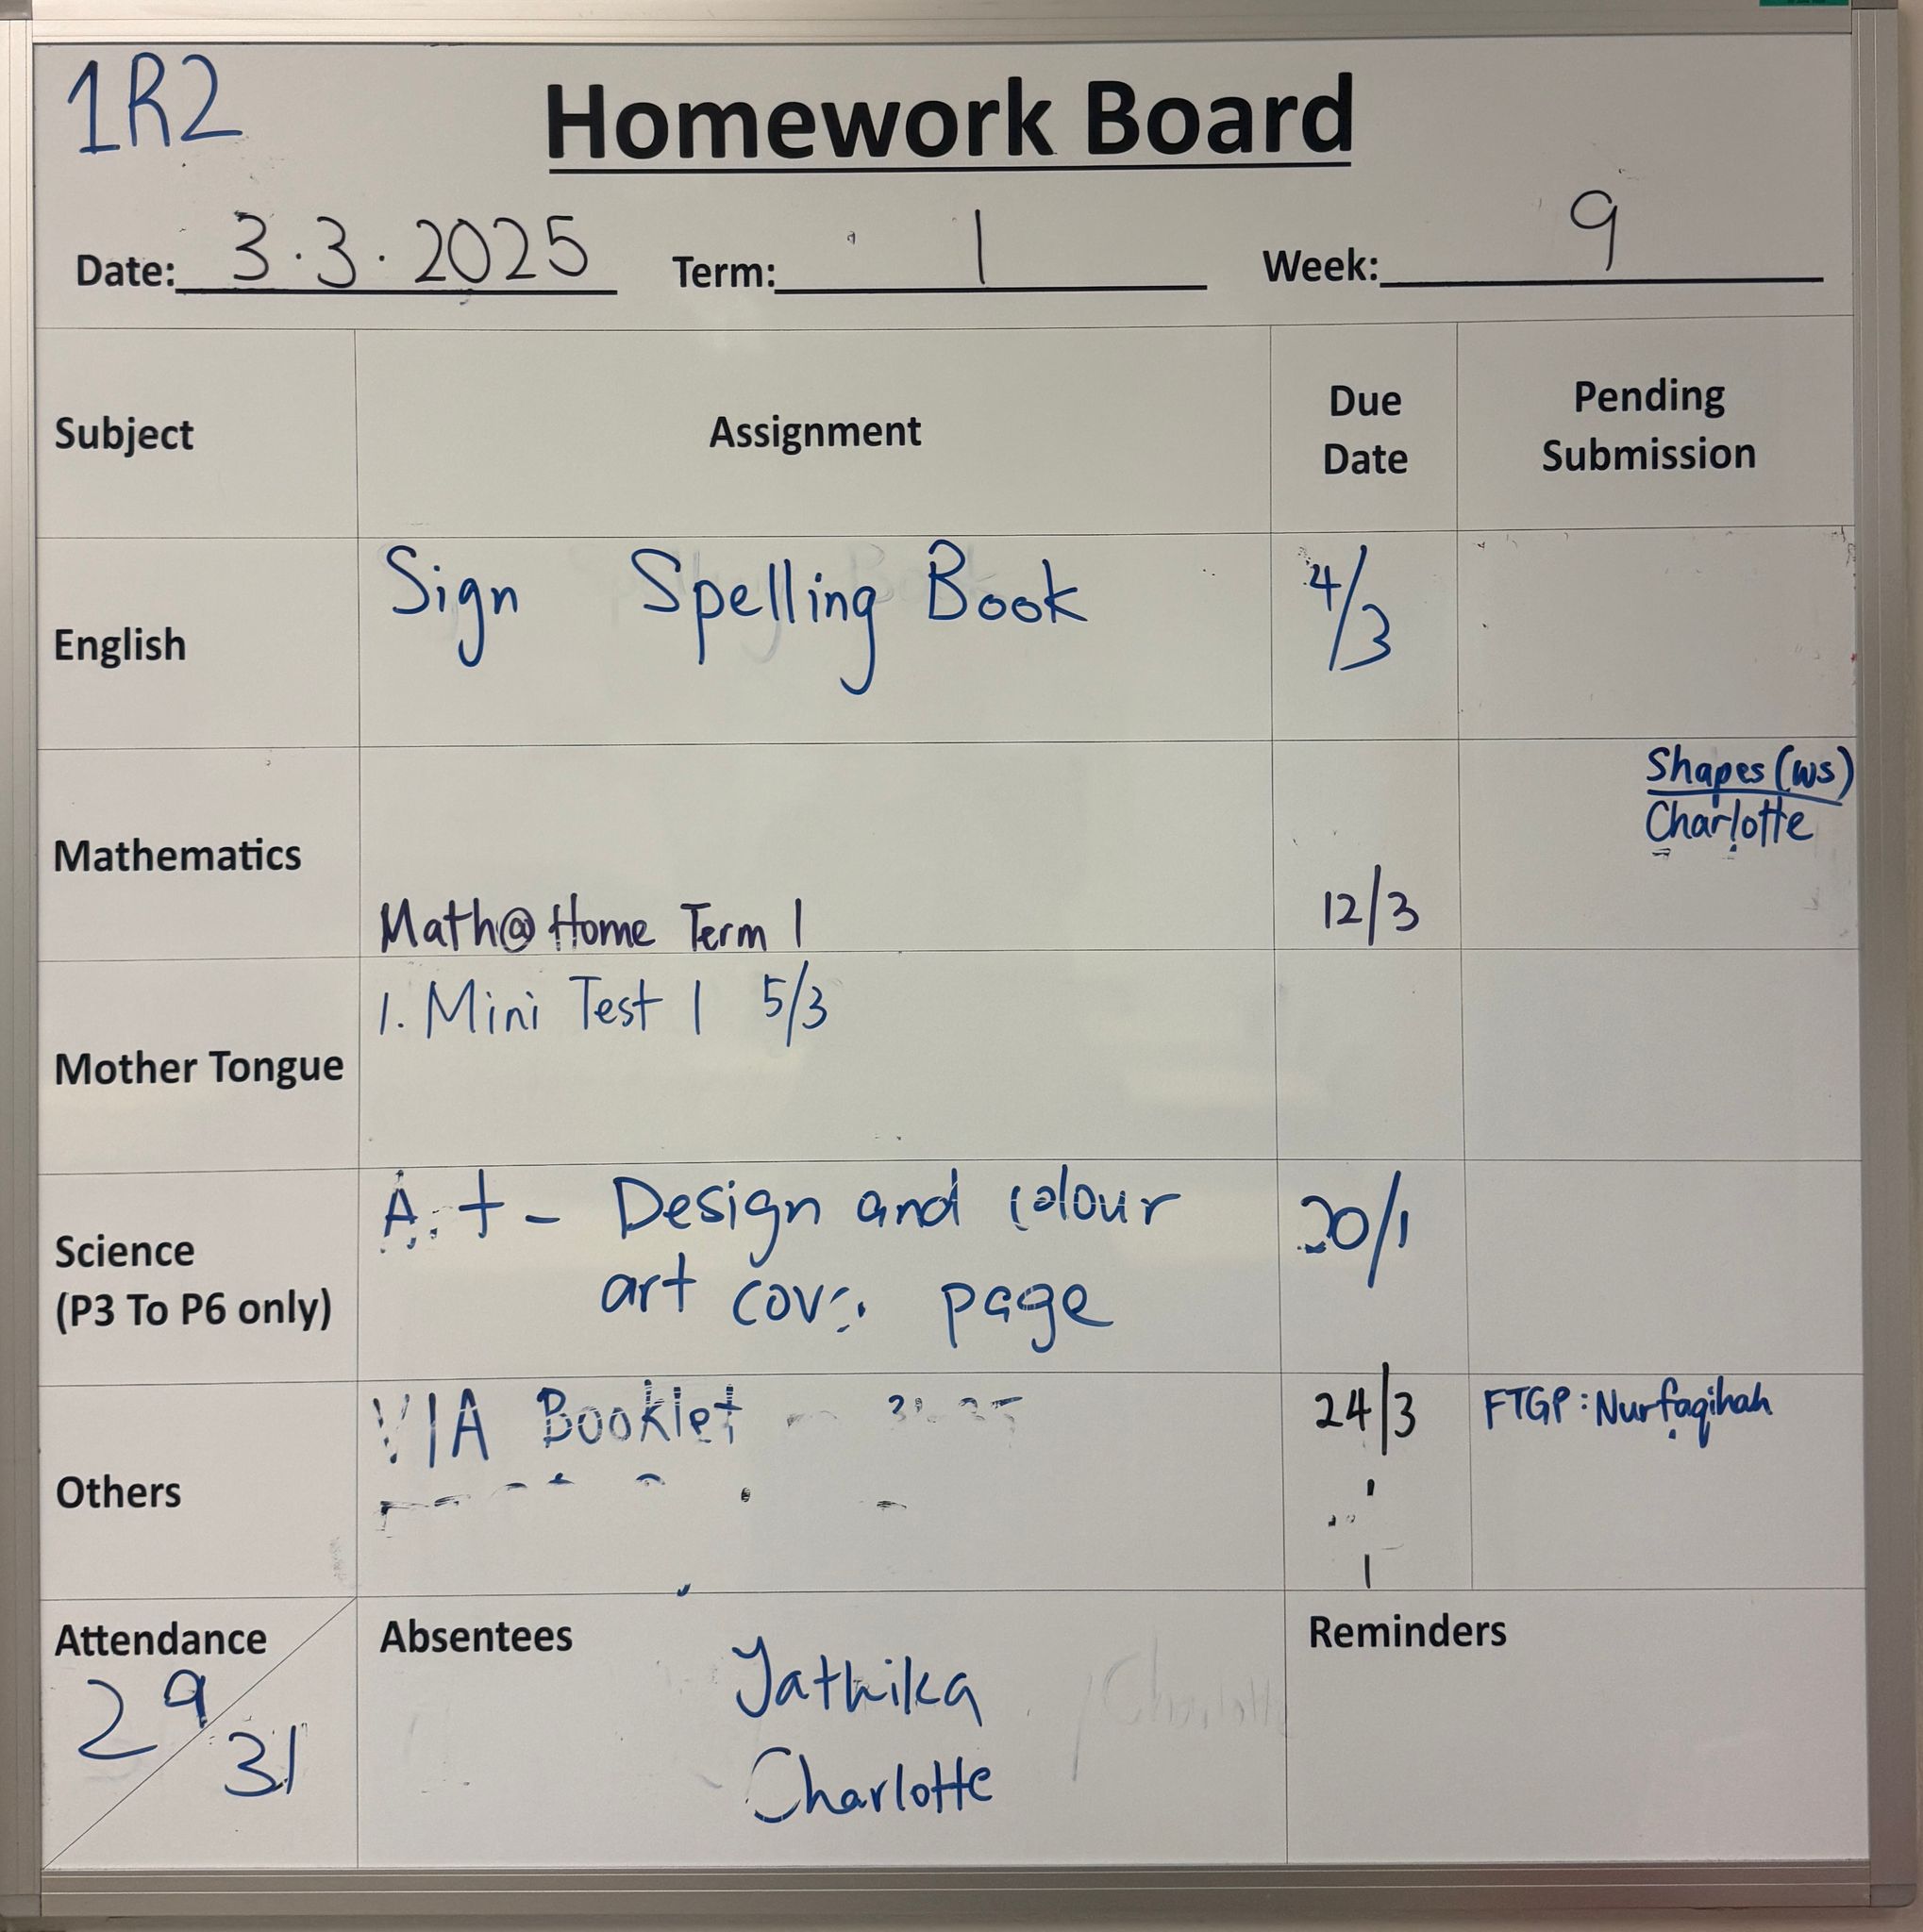 1R2
Homework Board
Date: 3.3.2025 Term: 1 Week: 9
Subject Assignment Due Date Pending Submission
English Sign Spelling Book 4/3
Mathematics Math@Home Term 1 12/3 Shapes (ws) Charlotte
Mother Tongue 1. Mini Test 1 5/3
Science (P3 To P6 only) A.t - Design and colour art cov. page 20/1
Others VIA Booklet 24/3 FTGP: Nurfaqihah
Attendance 29/31 Absentees Reminders
Yathika
Charlotte